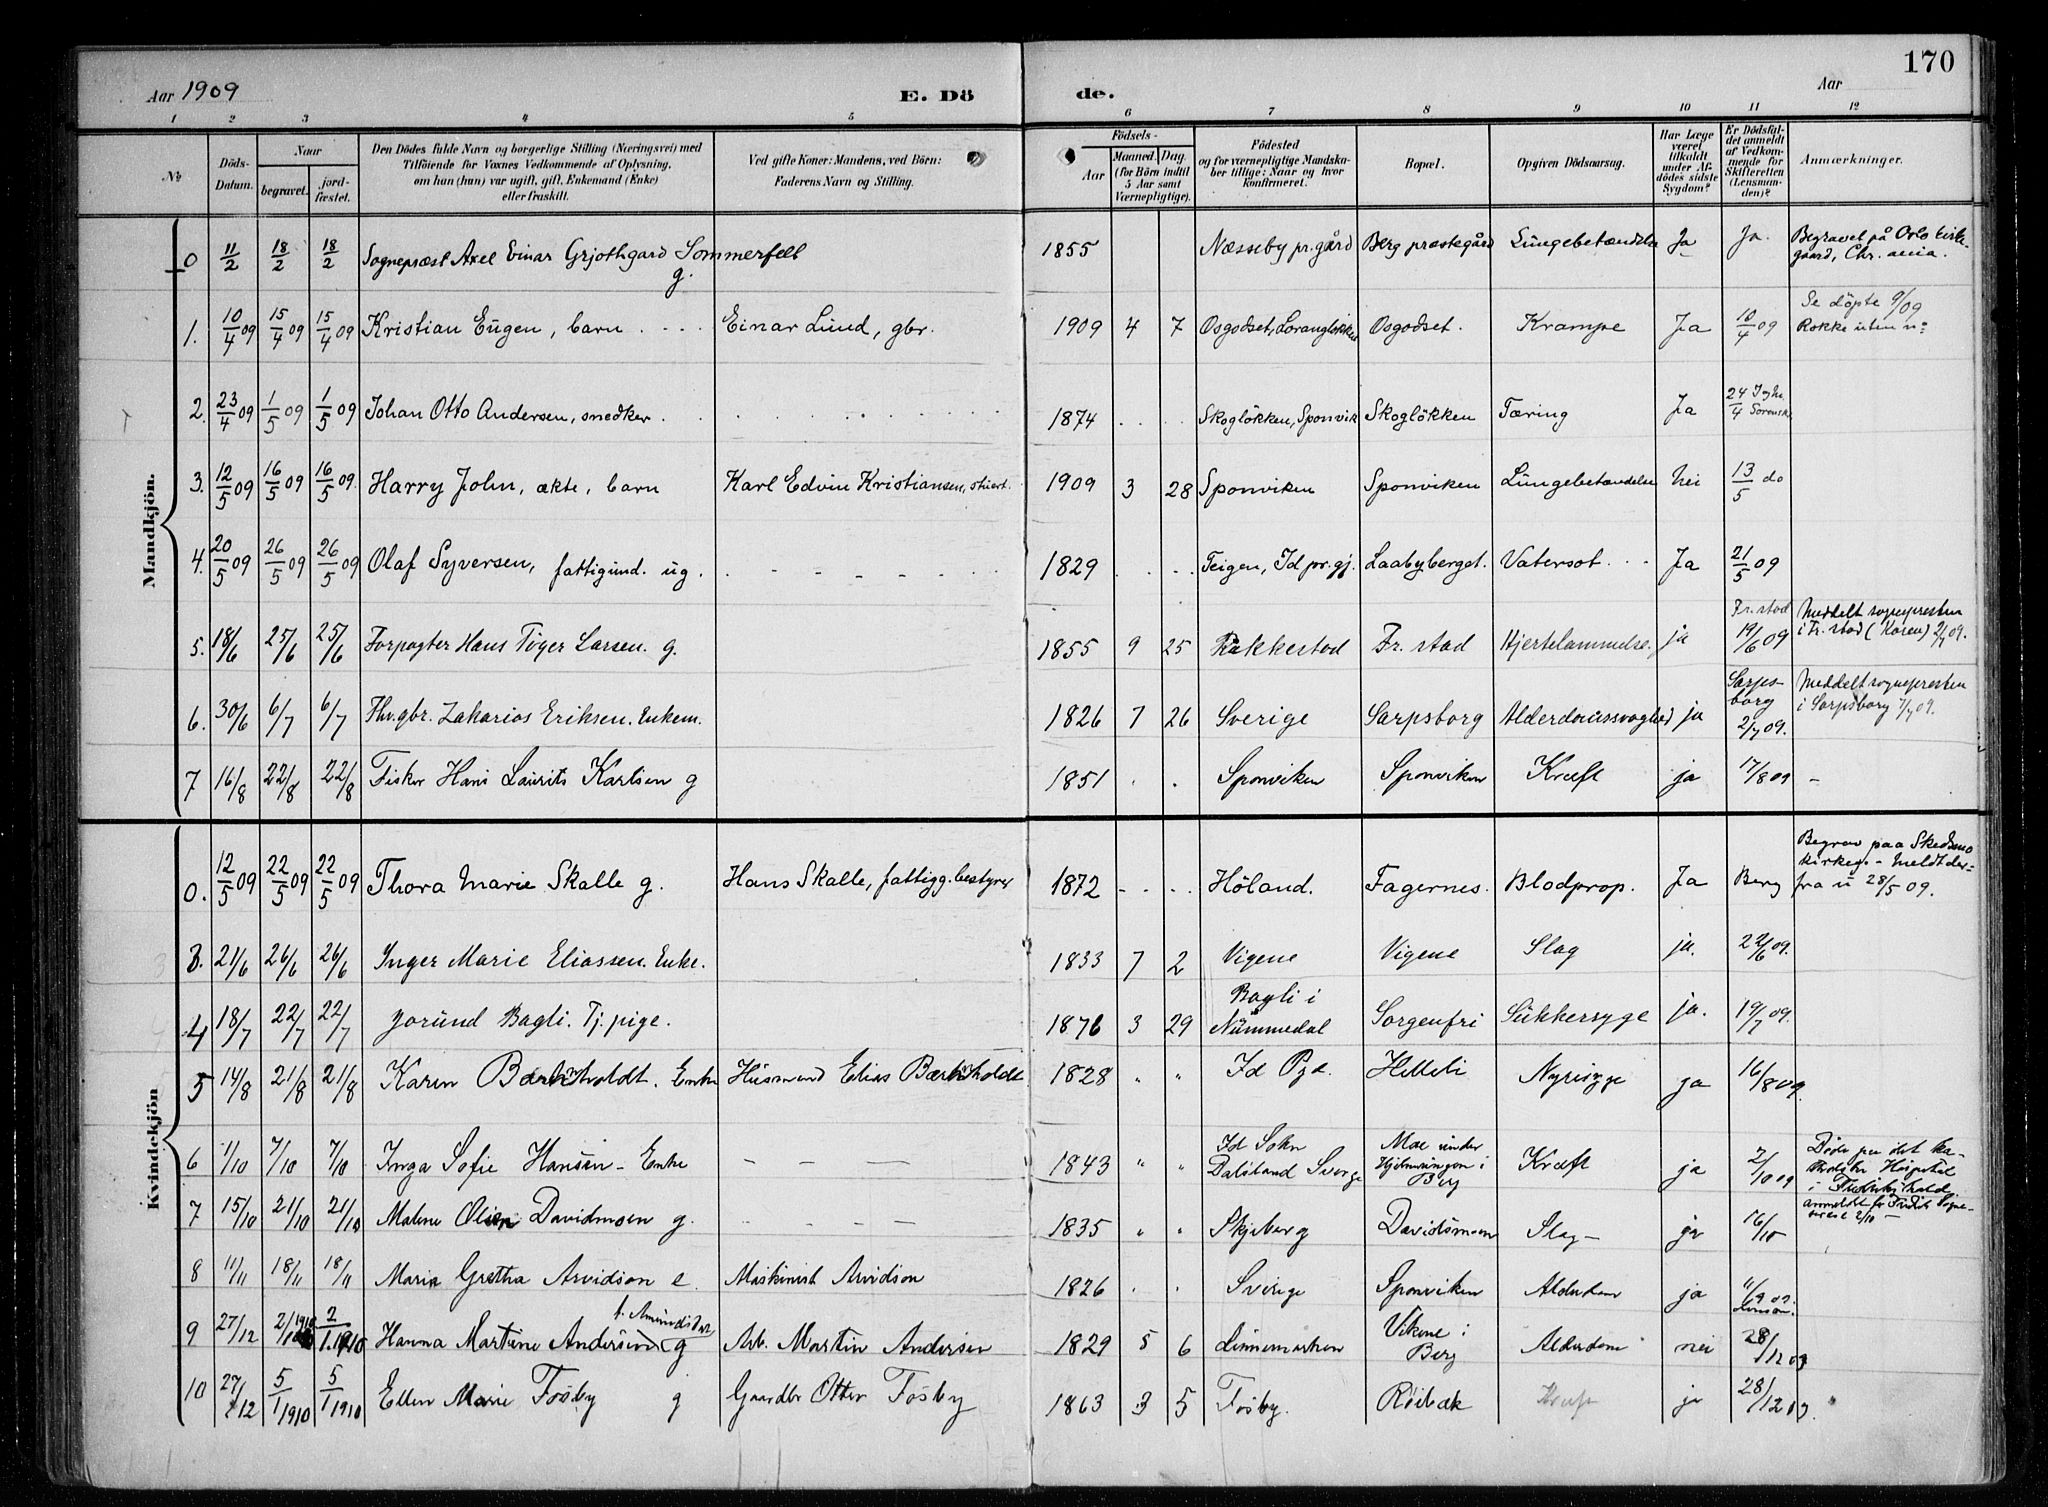 Aar 1909 E. Dö
de. Aar 170
1 2 3 4 5 6 7 8 9 10 11 12
No Döds-Datum. Naar begravet. jordfæstet. Den Dödes fulde Navn og borgerlige Stilling (Næringsvei) med Tilföiende for Voxnes Vedkommende af Oplysning, om han (hun) var ugift, gift, Enkemand (Enke) eller fraskilt. Ved gifte Koner: Mandens, ved Börn: Faderens Navn og Stilling. Födsels- Aar Maaned. Dag. (for Börn indtil 5 Aar samt Værnepligtige). Födested og for værnepligtige Mandskaber tillige: Naar og hvor konfirmeret. Bopæl. Opgiven Dödsaarsag. Har Læge været tilkaldt under Afdödes sidste Sygdom? Er Dödsfaldet anmeldt af Vedkommende for Skifteretten (Lensmanden)? Anmærkninger.
Mandkjön.
0 11/2 18/2 18/2 Sogneprest Axel Einar Grjothgard Sommerfelt g. 1855 Næsseby pr.gård Berg præstegård Lungebetændelse Ja Ja. Begravet på Oslo kirkegaard, Chr.ania.
1. 10/4 09 15/4 09 15/4 09 Kristian Eugen, barn Einar Lund, gbr. 1909 4 7 Osgodset, Osgodset. Krampe Ja 10/4 09 Se döpte 9/09 Rokke uten n:
2. 23/4 09 1/5 09 1/5 09 Johan Otto Andersen, snedker. 1874 Skoglökken, Sponvik Skoglökken Tæring Ja 24/4
3. 12/5 09 16/5 09 16/5 09. Harry John, ækte, barn Karl Edvin Kristiansen, stuert. 1909 3 28 Sponviken Sponviken Lungebetændelse Nei 13/5 do
4. 20/5 09 26/5 09 26/5 09 Olaf Syversen, fattigund. ug. 1829 Teigen, Id pr.gj. Laabyberget. Vatersot Ja 21/5 09
5. 18/6 25/6 25/6 Forpagter Hans Töger Larsen. g. 1855 9 25 Rakkestad Fr. stad Hjertelammelse. ja Fr. stad 19/6 09 Meddelt sognepresten i Fr. stad (Koren) 2/7 09.
6. 30/6 6/7 6/7 Fhv. gbr. Zakarias Eriksen. Enkem. 1826 7 26 Sverige Sarpsborg Alderdomssvaghed ja Sarpsborg 2/7 09. Meddelt sognepresten i Sarpsborg 7/7 09.
7 16/8 22/8 22/8 Fisker Hans Laurits Karlsen g 1851 Sponviken Sponviken Kræft ja 17/8 09 -
Kvindekjön
0. 12/5 09 22/5 09 22/5 09 Thora Marie Skalle g. Hans Skalle, fattigg.bestyrer 1872 Höland. Fagernes. Blodprop. Ja Berg Begrav paa Skedsmo kirkeg. - Meldt derfra 28/5 09.
3. 21/6 26/6 26/6 Inger Marie Eliassen. Enke. 1833 7 2 Vigene Vigene Slag ja. 22/6 09.
4 18/7 22/7 22/7 Jorund Bagli. Tj.pige. 1876 3 29 Bagli i Nummedal Sorgenfri Sukkersyge ja. 19/7 09.
5 14/8 21/8 21/8 Karen Enke Husmand Elias 1828 " " Id Pgd. Helleli Nyresyge ja 16/8 09.
6 1/10 7/10 7/10 Inga Sofie Hansen - Enke 1843 " " Id Sokn Dalsland Sverge Moe under i Berg Kræft ja 2/10 09 Döde paa det katholske Hospital i Fredrikshald anmeldt
7 15/10 21/10 21/10 Malene Olsen Davidmoen g. 1835 " " Skjeberg Davidsmoen Slag - ja 16/10
8 11/11 18/11 18/11 Maria Gretha Arvidson e. Maskinist Arvidson 1826 Sverige Sponviken Alderdom ja
9 27/12 2/1 1910 2/1.1910 Hanna Martine Andersen f. Amundsdatter g Arb. Martin Andersen 1829 5 6 Linnemarken Vikene i Berg Alderdom nei 28/12 09
10 27/12 5/1 1910 5/1 1910 Ellen Marie Fosby g Gaardbr Otter Fosby 1863 3 5 Fosby. Rödbæk Kræft ja 28/12 09.